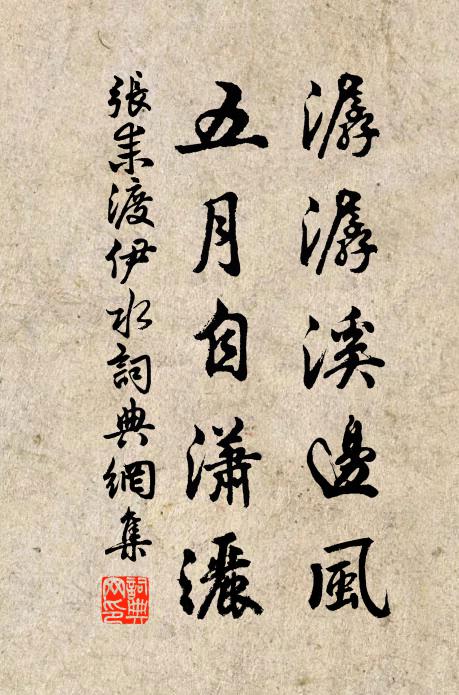 潺潺溪邊風
五月自瀟灑
張耒渡伊水詞典網集
詞典網印